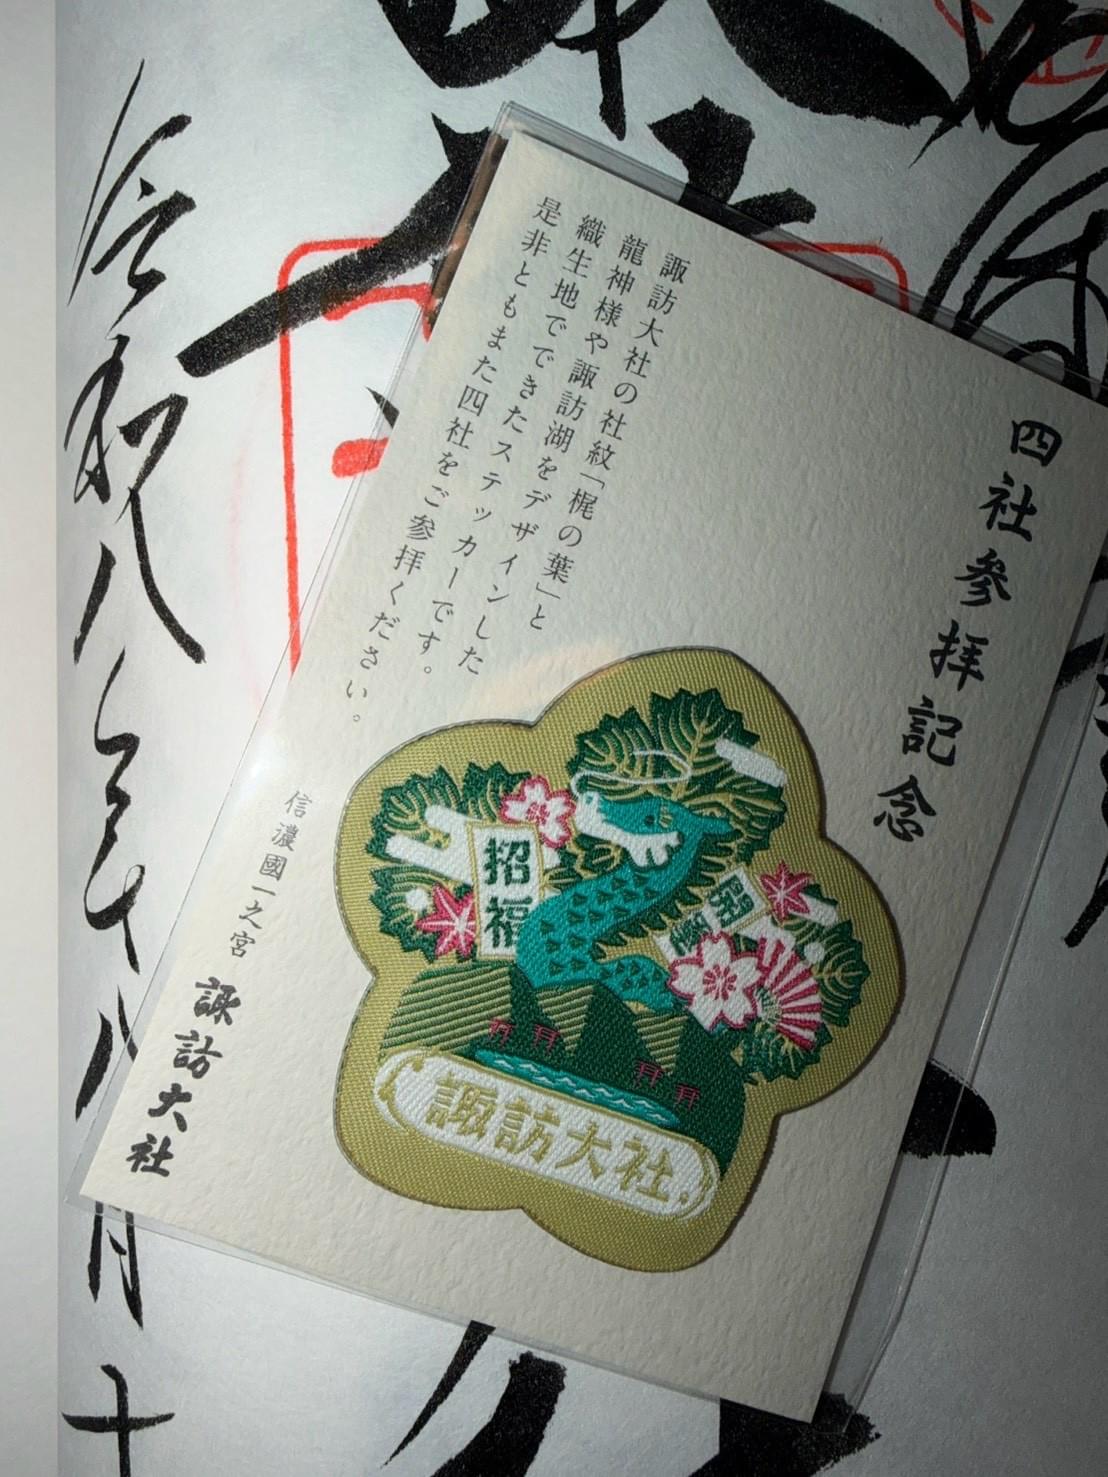 四社参拝記念
諏訪大社の社紋「梶の葉」と
龍神様や諏訪湖をデザインした
織生地でできたステッカーです。
是非ともまた四社をご参拝ください。
信濃國一之宮 諏訪大社
招福
開運
諏訪大社
令和八年八月十